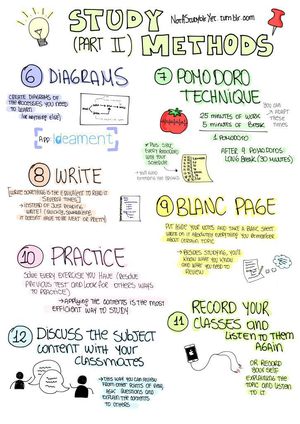 STUDY
(PART II) METHODS
NorthStudybler Yer. tumblr.com
6 DIAGRAMS
CREATE DIAGRAMS OF
THE PROCESSES YOU NEED
TO LEARN
(OR ANYTHING ELSE)
App: Ideament
7 POMODORO
TECHNIQUE
25 MINUTES OF WORK
5 MINUTES OF BREAK
YOU CAN
ADAPT
THESE
TIMES
1 POMODORO
AFTER 4 POMODOROS:
LONG BREAK (30 MINUTES)
EVERY POMODORO
YOUR
SCHEDULE
8 WRITE
WRITE SOMETHING IS THE EQUIVALENT TO READ IT
SEVERAL TIMES
→ INSTEAD OF JUST READING,
WRITE! (QUICKLY, SUMMARIZING,
IT DOESN'T HAVE TO BE NEAT OR PRETTY)
9 BLANC PAGE
PUT ASIDE YOUR NOTES AND TAKE A BLANK SHEET.
WRITE ON IT ABSOLUTELY EVERYTHING YOU REMEMBER
ABOUT CERTAIN TOPIC
→ BESIDES STUDYING, YOU'LL
KNOW WHAT YOU KNOW
AND WHAT YOU NEED TO
REVIEW
10 PRACTICE
SOLVE EVERY EXERCISE YOU HAVE (RESOLVE
PREVIOUS TEST AND LOOK FOR OTHERS WAYS
TO PRACTICE)
→ APPLYING THE CONTENTS IS THE MOST
EFFICIENT WAY TO STUDY
11 RECORD YOUR
CLASSES AND
LISTEN TO THEM
AGAIN
OR RECORD
YOURSELF
EXPLAINING THE
TOPIC AND
LISTEN TO IT
12 DISCUSS THE SUBJECT
CONTENT WITH YOUR
CLASSMATES
→ THIS WAY YOU CAN REVIEW
FROM OTHER POINTS OF VIEW,
ASK QUESTIONS AND
EXPLAIN THE CONTENTS
TO OTHERS